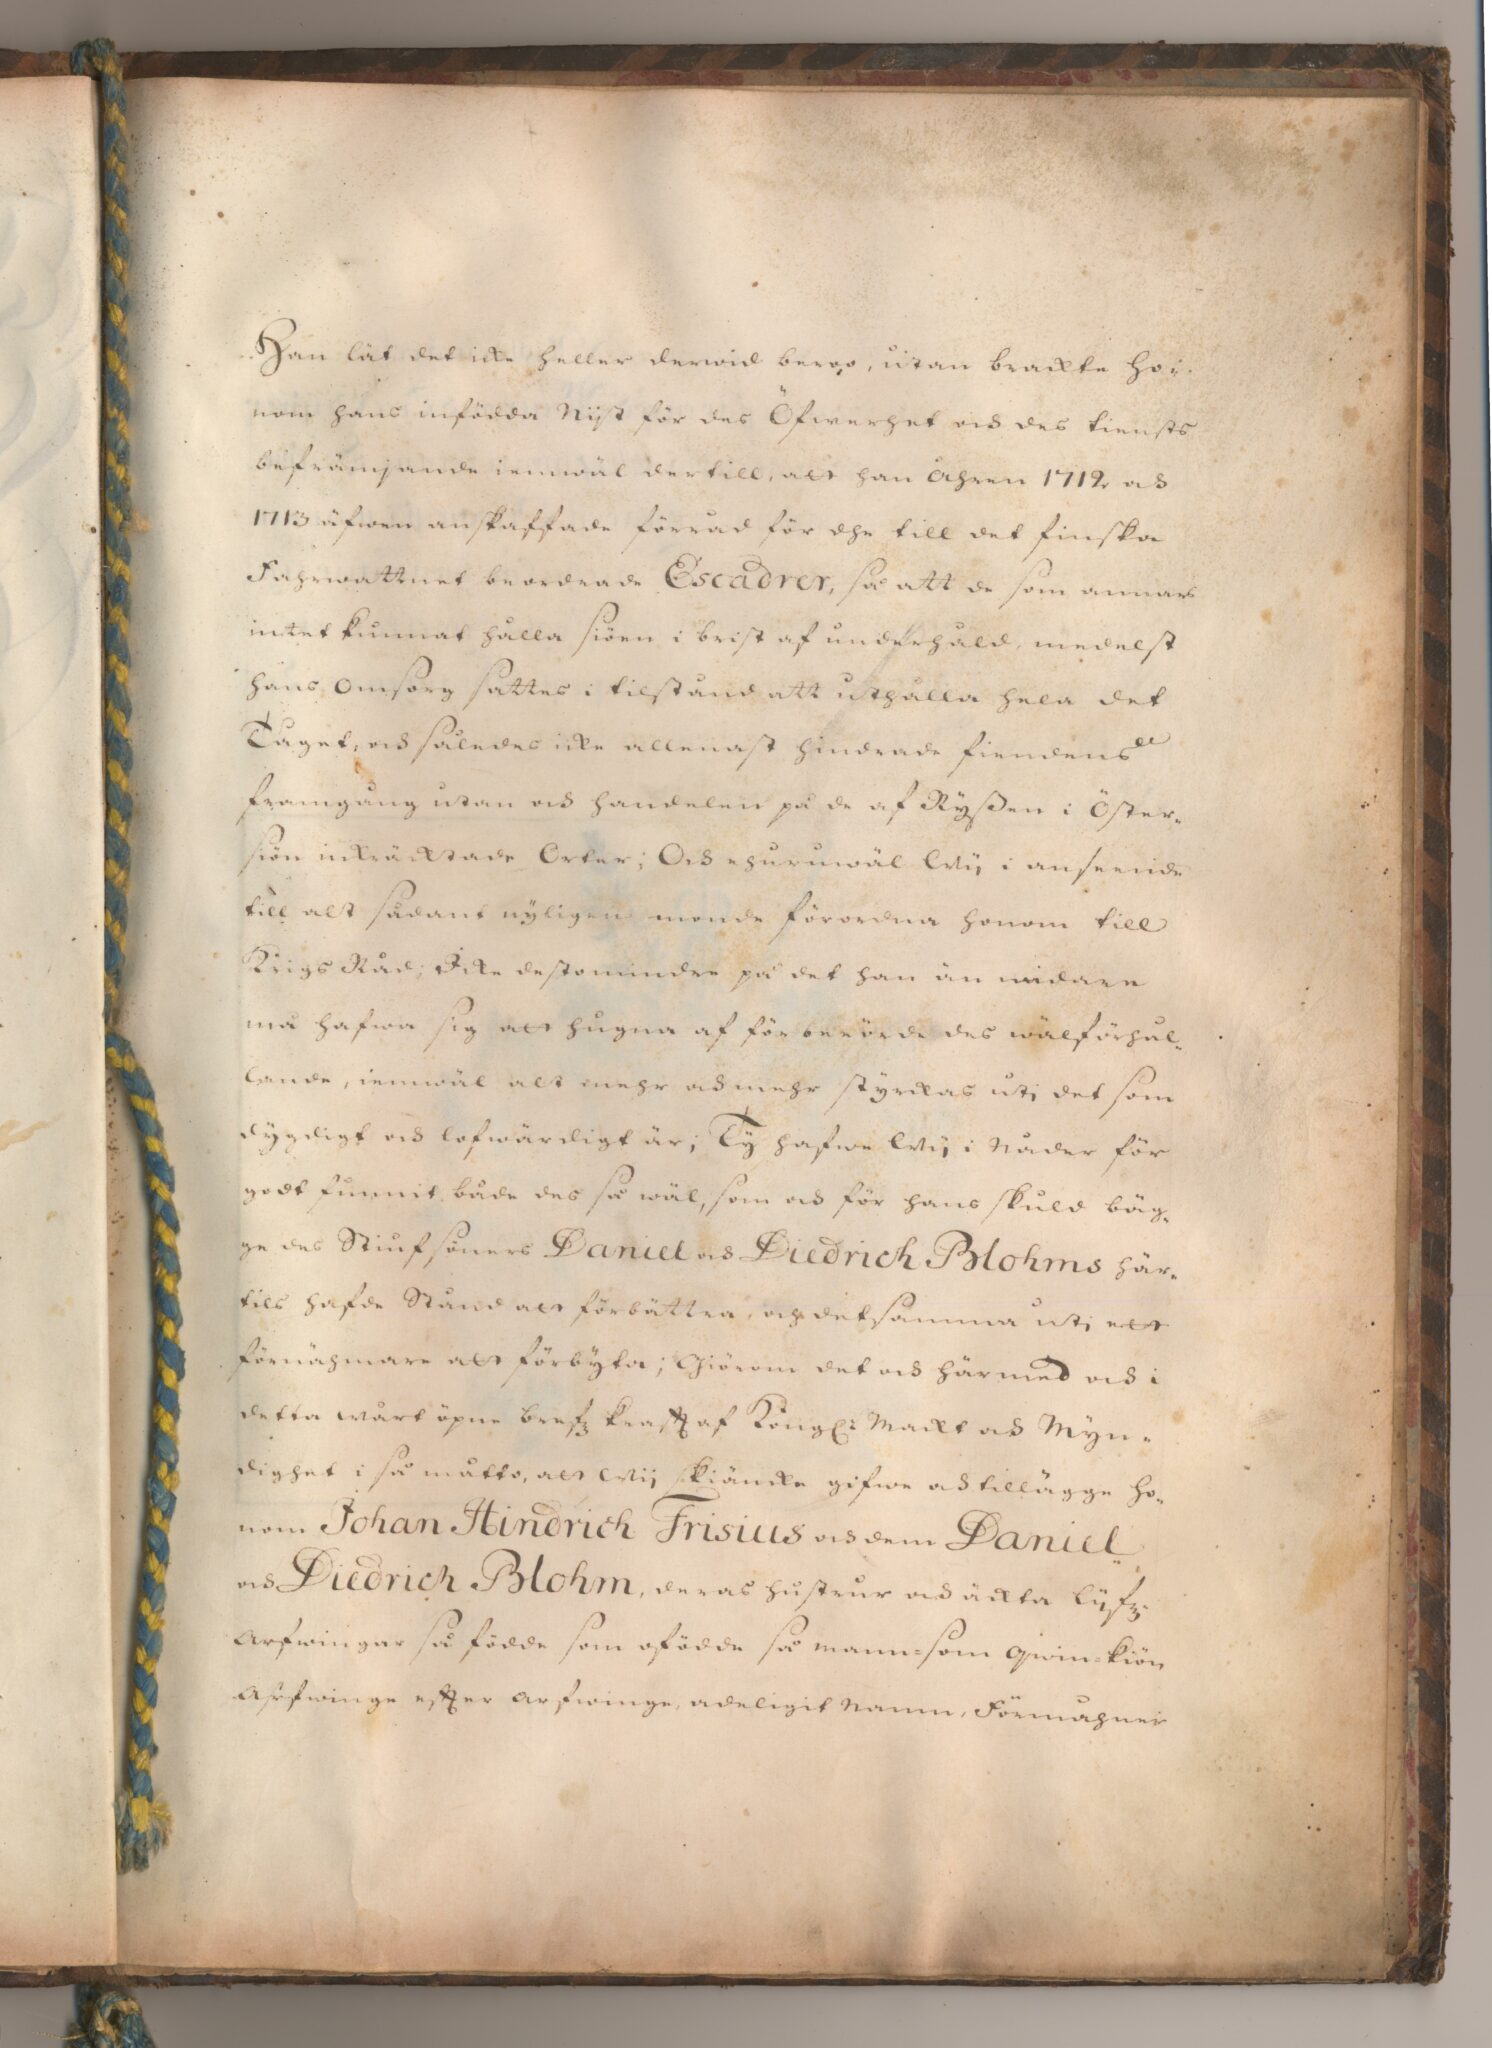 Han lät det icke heller derwid bero, utan brackte ho-
nom hans infödda Nijt för des Öfwerhet och des tiensts
befrämjande jemwäl dertill, att han Åhren 1712 och
1713 äfwen anskaffade förråd för dhe till det finska
Fahrwattnet beordrade Escadrer, så att de som annars
intet kunnat hålla siöen i brist af underhåld, medelst
hans Omsorg sattes i tilstånd att uthålla hela det
Tåget, och således icke allenast hindrade fiendens
framgång utan och handelen på de af Ryßen i Öster-
siön inkräcktade Orter; Och ehuruwäl Wij i anseende
till alt sådant nyligen monde förordna honom till
Krigs Råd; Icke destomindre på det han än widare
må hafwa sig att hugna af förberörde des wälförhål-
lande, jemwäl alt mehr och mehr styrckas uti det som
dygdigt och lofwärdigt är; Ty hafwe Wij i Nåder för
godt funnit både des så wäl, som och för hans skuld bäg-
ge des Stiufsöners Daniel och Diedrich Blohms här-
tils hafde Stånd att förbättra, och det samma uti ett
förnähmare att förbyta; Giörom det och härmed och i
detta wårt öpne bref, krafft af Kongl: Mackt och Myn-
dighet i så måtto, att Wij skiäncke gifwe och tillägge ho-
nom Johan Hindrich Frisius och dem Daniel
och Diedrich Blohm, deras hustrur och äckta lijfz-
Arfwingar så födde som ofödde så mann- som qwin-kiön
Arfwinge effter arfwinge, adeligit Namn, Förmåhner